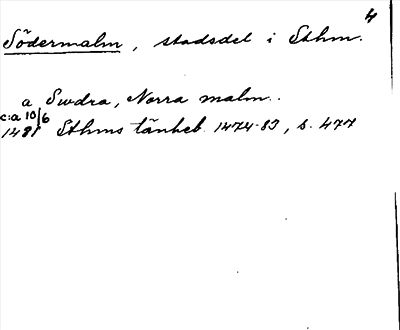 4
Södermalm, stadsdel i Sthm.
a Swdra, Norra malm..
c:a 10/6
1481 Sthms tänkeb. 1474-83, s. 477